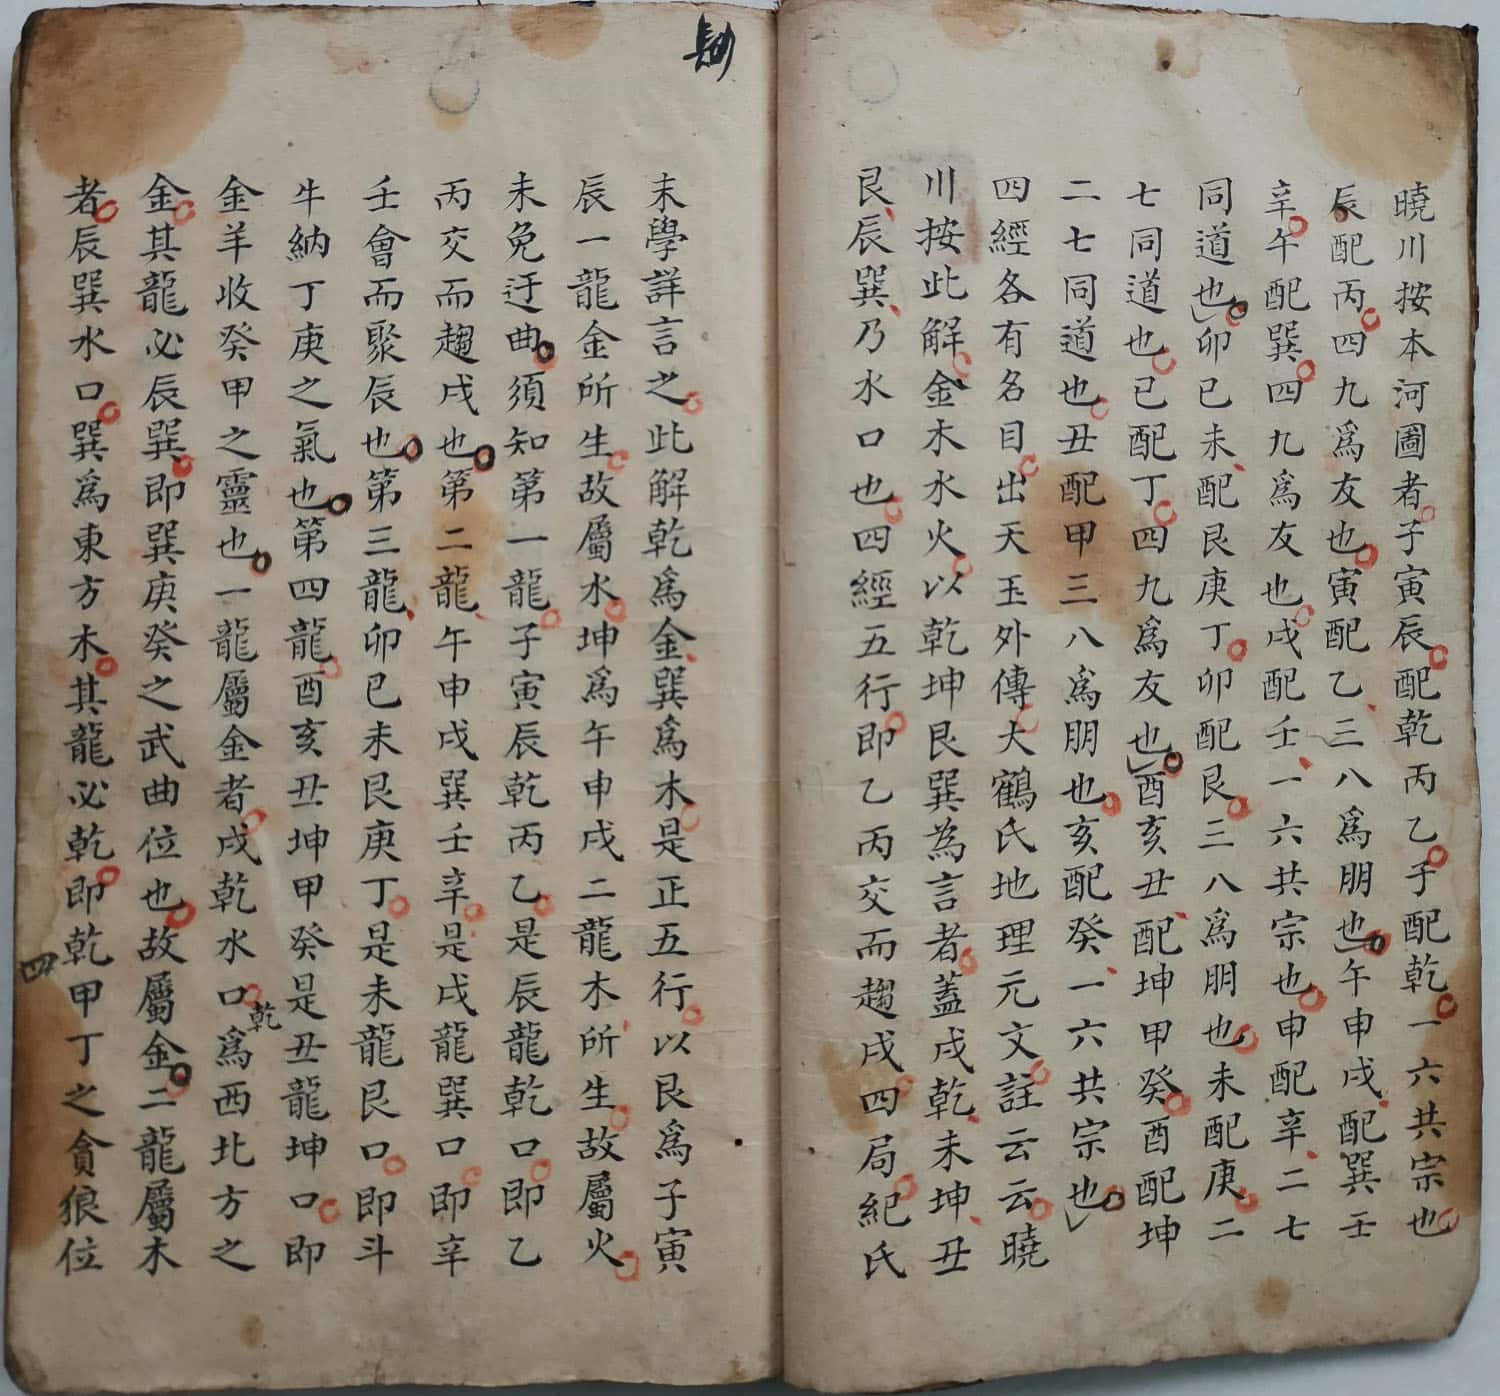 曉川按本河圖者子寅辰配乾丙乙子配乾一六共宗也
辰配丙四九爲友也寅配乙三八爲朋也午申戌配巽壬
辛午配巽四九爲友也戌配壬一六共宗也申配辛二七
同道也卯巳未配艮庚丁卯配艮三八爲朋也未配庚二
七同道也巳配丁四九爲友也酉亥丑配坤甲癸酉配坤
二七同道也丑配甲三八爲朋也亥配癸一六共宗也
四經各有名目出天玉外傳大鶴氏地理元文註云云曉
川按此解金木水火以乾坤艮巽為言者蓋戌乾未坤丑
艮辰巽乃水口也四經五行即乙丙交而趨戌四局紀氏
末學詳言之此解乾爲金巽爲木是正五行以艮爲子寅
辰一龍金所生故屬水坤爲午申戌二龍木所生故屬火
未免迂曲須知第一龍子寅辰乾丙乙是辰龍乾口即乙
丙交而趨戌也第二龍午申戌巽壬辛是戌龍巽口即辛
壬會而聚辰也第三龍卯巳未艮庚丁是未龍艮口即斗
牛納丁庚之氣也第四龍酉亥丑坤甲癸是丑龍坤口即
金羊收癸甲之靈也一龍屬金者戌乾水口爲西北方之
乾
金其龍必辰巽即巽庚癸之武曲位也故屬金二龍屬木
者辰巽水口巽爲東方木其龍必乾即乾甲丁之貪狼位
四